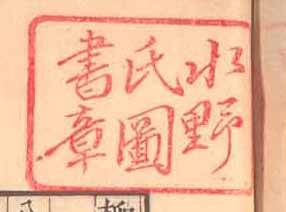 水野
氏圖
書章